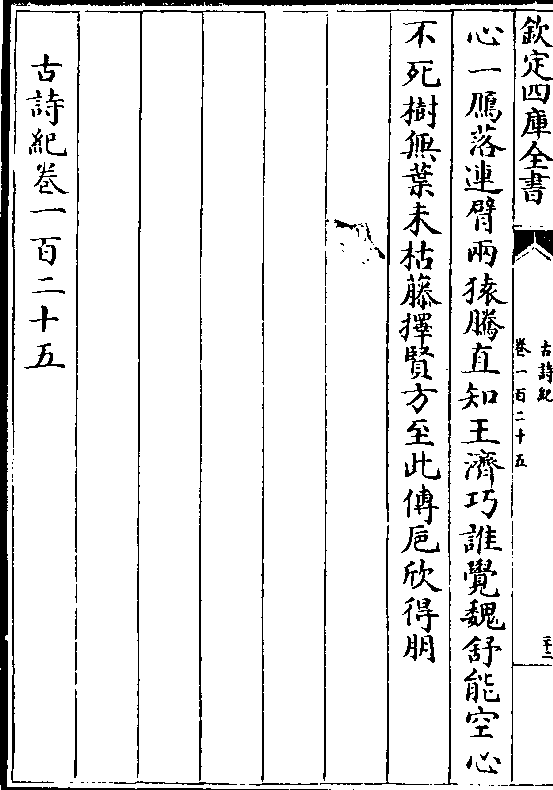 欽定四庫全書
古詩紀
卷一百二十五
心一鴈落連臂兩猿騰直知王濟巧誰覺魏舒能空心
不死樹無葉未枯藤擇賢方至此傳卮欣得朋
古詩紀卷一百二十五